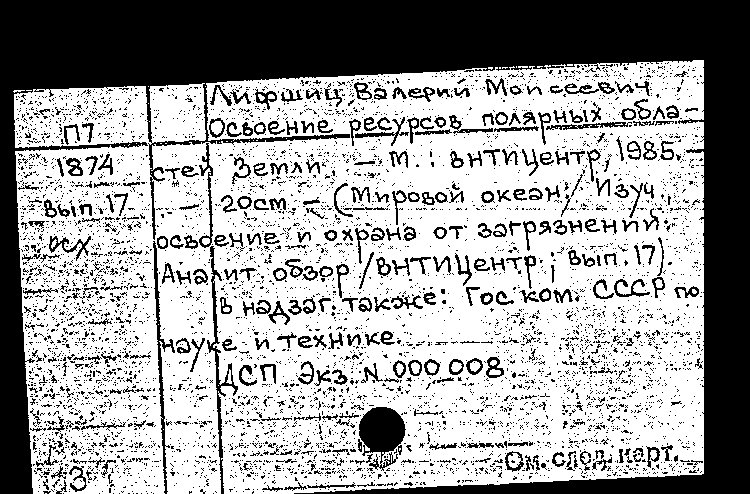 Лифшиц, Валерий Моисеевич
П7 Освоение ресурсов полярных обла-
1874 стей Земли. – М.: ВНТИЦентр, 1985. –
Вып.17 – 20см. – (Мировой океан: Изуч.,
осх освоение и охрана от загрязнений:
Аналит. обзор / ВНТИЦентр; Вып.17).
В надзаг. также: Гос. ком. СССР по
науке и технике.
ДСП Экз. N 000 008.
См. след. карт.
3